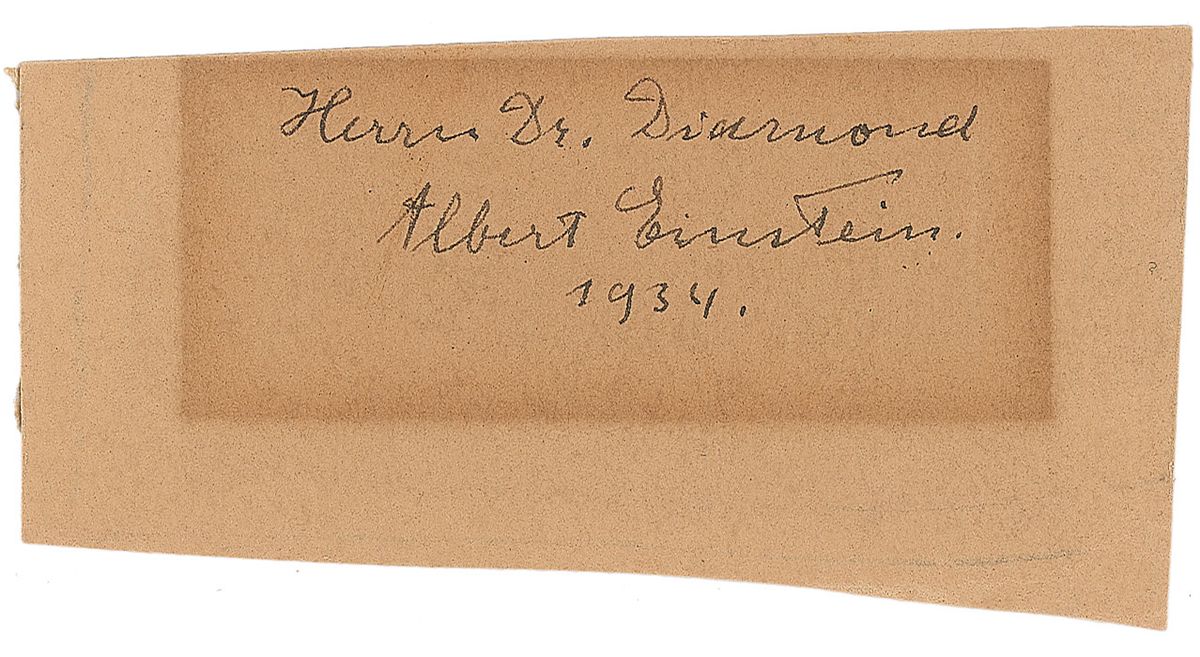 Herrn Dr. Diamond
Albert Einstein.
1934.